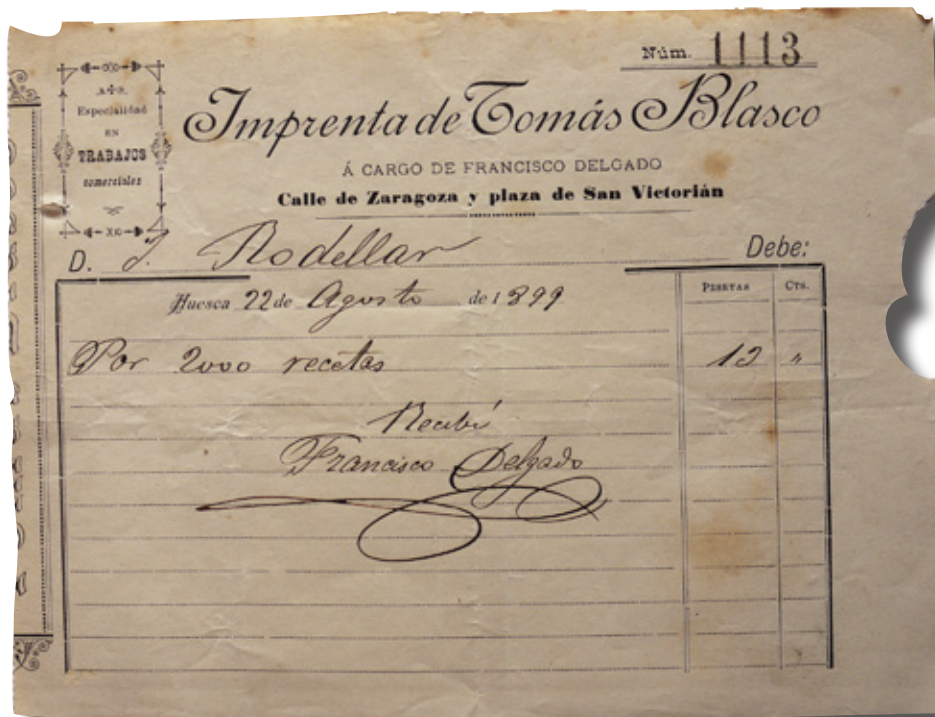 Núm. 1113
Especialidad
EN
TRABAJOS
comerciales
Imprenta de Tomás Blasco
Á CARGO DE FRANCISCO DELGADO
Calle de Zaragoza y plaza de San Victorián
D. J. Rodellar Debe:
Huesca 22 de Agosto de 1899 PESETAS CTS.
Por 2000 recetas 12 "
Recibí
Francisco Delgado